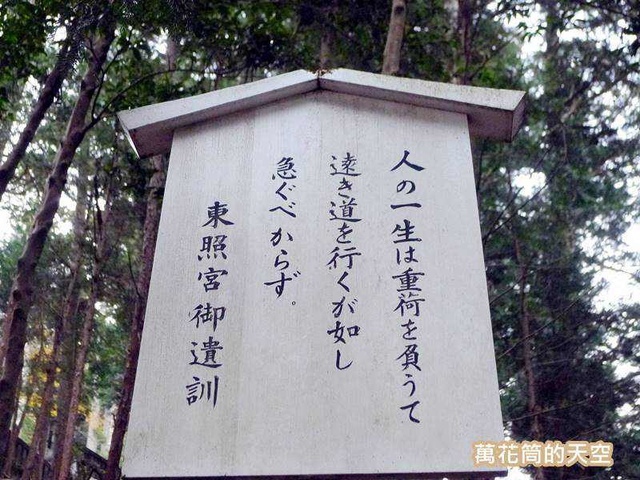 人の一生は重荷を負うて
遠き道を行くが如し
急ぐべからず。
東照宮御遺訓
萬花筒的天空